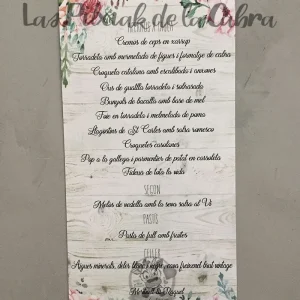 Las Pworak de la Cabra
Cremos de ceps en xarrup
Torradeta amb mermelada de figues i formatge de cabra
Croqueta catalana amb escalibada i anxoves
Ous de guatlla torradeta i sobrasada
Bunyols de bacalla amb base de mel
Foie en torradeta i melmelada de poma
Llagostins de St Carles amb salsa romesco
Croquetes casolanes
Pop a la gallega i parmentier de patat en cassoleta
Fideua de tota la vida
SEGON
Melos de vedella amb la seva salsa al Vi
PASTIS
Pasta de full amb fruites
CELLER
Aigues minerals, deles blanc i negre, cava freixenet brut vintage